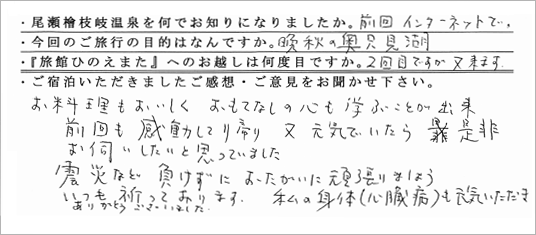 ・尾瀬檜枝岐温泉を何でお知りになりましたか。前回インターネットで。
・今回のご旅行の目的はなんですか。晩秋の奥只見湖
・『旅館ひのえまた』へのお越しは何度目ですか。2回目ですが又来ます。
・ご宿泊いただきましたご感想・ご意見をお聞かせ下さい。
お料理もおいしく おもてなしの心も学ぶことが出来
前回も感動して帰り 又元気でいたら 是非
お伺いしたいと思っていました
震災など負けずにおたがいに頑張りましょう
いつも祈っております。 私の身体(心臓病)も元気いただき
ありがとうございました。